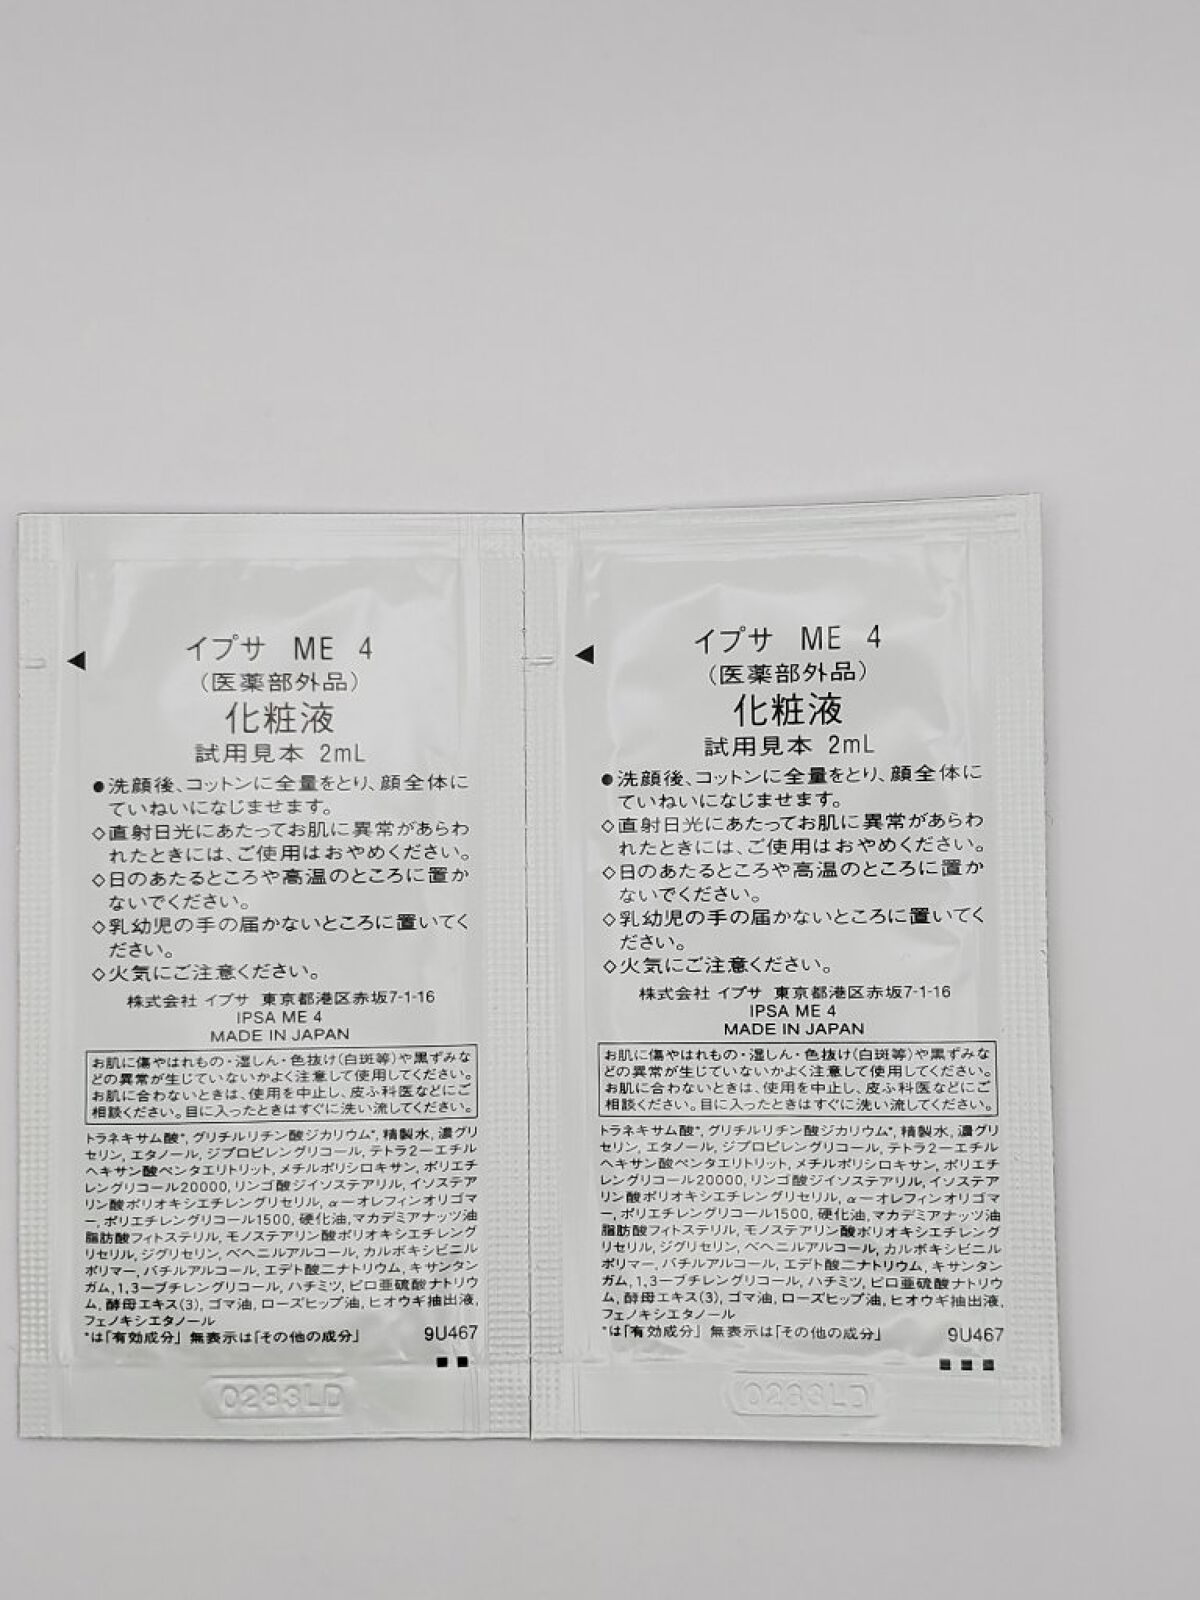 イプサ ME 4
(医薬部外品)
化粧液
試用見本 2mL
●洗顔後、コットンに全量をとり、顔全体に
ていねいになじませます。
◇直射日光にあたってお肌に異常があらわ
れたときには、ご使用はおやめください。
◇日のあたるところや高温のところに置か
ないでください。
◇乳幼児の手の届かないところに置いてく
ださい。
◇火気にご注意ください。
株式会社 イプサ 東京都港区赤坂7-1-16
IPSA ME 4
MADE IN JAPAN
お肌に傷やはれもの・湿しん・色抜け(白斑等)や黒ずみな
どの異常が生じていないかよく注意して使用してください。
お肌に合わないときは、使用を中止し、皮ふ科医などにご
相談ください。目に入ったときはすぐに洗い流してください。
トラネキサム酸*, グリチルリチン酸ジカリウム*, 精製水, 濃グリ
セリン, エタノール, ジプロピレングリコール, テトラ2ーエチル
ヘキサン酸ペンタエリトリット, メチルポリシロキサン, ポリエチ
レングリコール20000, リンゴ酸ジイソステアリル, イソステア
リン酸ポリオキシエチレングリセリル, αーオレフィンオリゴマ
ー, ポリエチレングリコール1500, 硬化油, マカデミアナッツ油
脂肪酸フィトステリル, モノステアリン酸ポリオキシエチレング
リセリル, ジグリセリン, ベヘニルアルコール, カルボキシビニル
ポリマー, バチルアルコール, エデト酸二ナトリウム, キサンタン
ガム, 1,3ーブチレングリコール, ハチミツ, ピロ亜硫酸ナトリウ
ム, 酵母エキス(3), ゴマ油, ローズヒップ油, ヒオウギ抽出液,
フェノキシエタノール
*は「有効成分」 無表示は「その他の成分」 9U467
0283LD
イプサ ME 4
(医薬部外品)
化粧液
試用見本 2mL
●洗顔後、コットンに全量をとり、顔全体に
ていねいになじませます。
◇直射日光にあたってお肌に異常があらわ
れたときには、ご使用はおやめください。
◇日のあたるところや高温のところに置か
ないでください。
◇乳幼児の手の届かないところに置いてく
ださい。
◇火気にご注意ください。
株式会社 イプサ 東京都港区赤坂7-1-16
IPSA ME 4
MADE IN JAPAN
お肌に傷やはれもの・湿しん・色抜け(白斑等)や黒ずみな
どの異常が生じていないかよく注意して使用してください。
お肌に合わないときは、使用を中止し、皮ふ科医などにご
相談ください。目に入ったときはすぐに洗い流してください。
トラネキサム酸*, グリチルリチン酸ジカリウム*, 精製水, 濃グリ
セリン, エタノール, ジプロピレングリコール, テトラ2ーエチル
ヘキサン酸ペンタエリトリット, メチルポリシロキサン, ポリエチ
レングリコール20000, リンゴ酸ジイソステアリル, イソステア
リン酸ポリオキシエチレングリセリル, αーオレフィンオリゴマ
ー, ポリエチレングリコール1500, 硬化油, マカデミアナッツ油
脂肪酸フィトステリル, モノステアリン酸ポリオキシエチレング
リセリル, ジグリセリン, ベヘニルアルコール, カルボキシビニル
ポリマー, バチルアルコール, エデト酸二ナトリウム, キサンタン
ガム, 1,3ーブチレングリコール, ハチミツ, ピロ亜硫酸ナトリウ
ム, 酵母エキス(3), ゴマ油, ローズヒップ油, ヒオウギ抽出液,
フェノキシエタノール
*は「有効成分」 無表示は「その他の成分」 9U467
0283LD